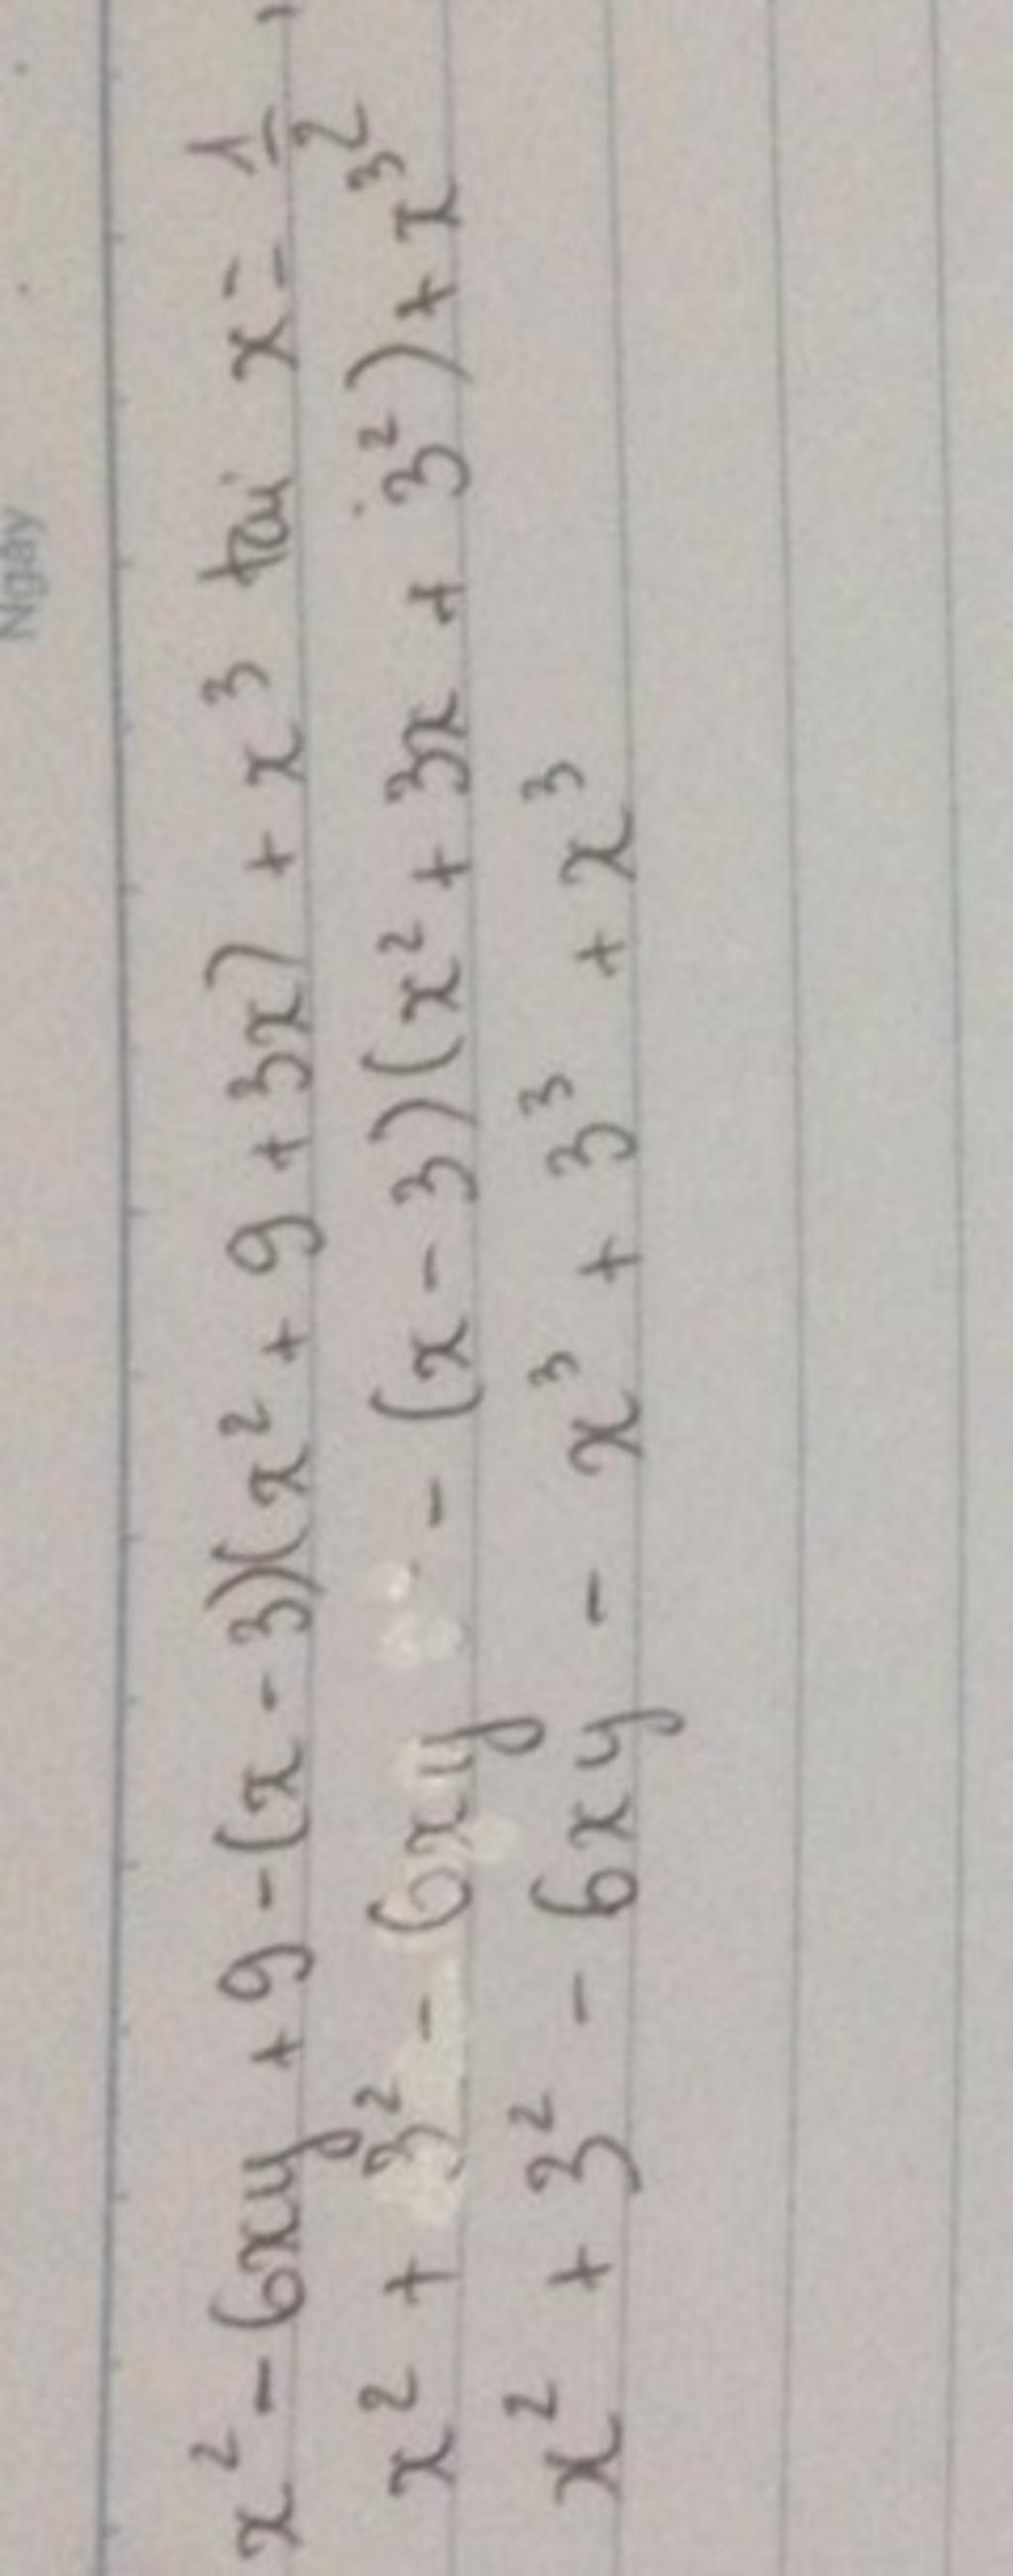 Ngày
x² - 6xy + 9 - (x - 3)(x² + 9 + 3x) + x³ tại x = 1/2
x² + 3² - 6xy - (x - 3)(x² + 3x + 3²) + x³
x² + 3² - 6xy - x³ + 3³ + x³